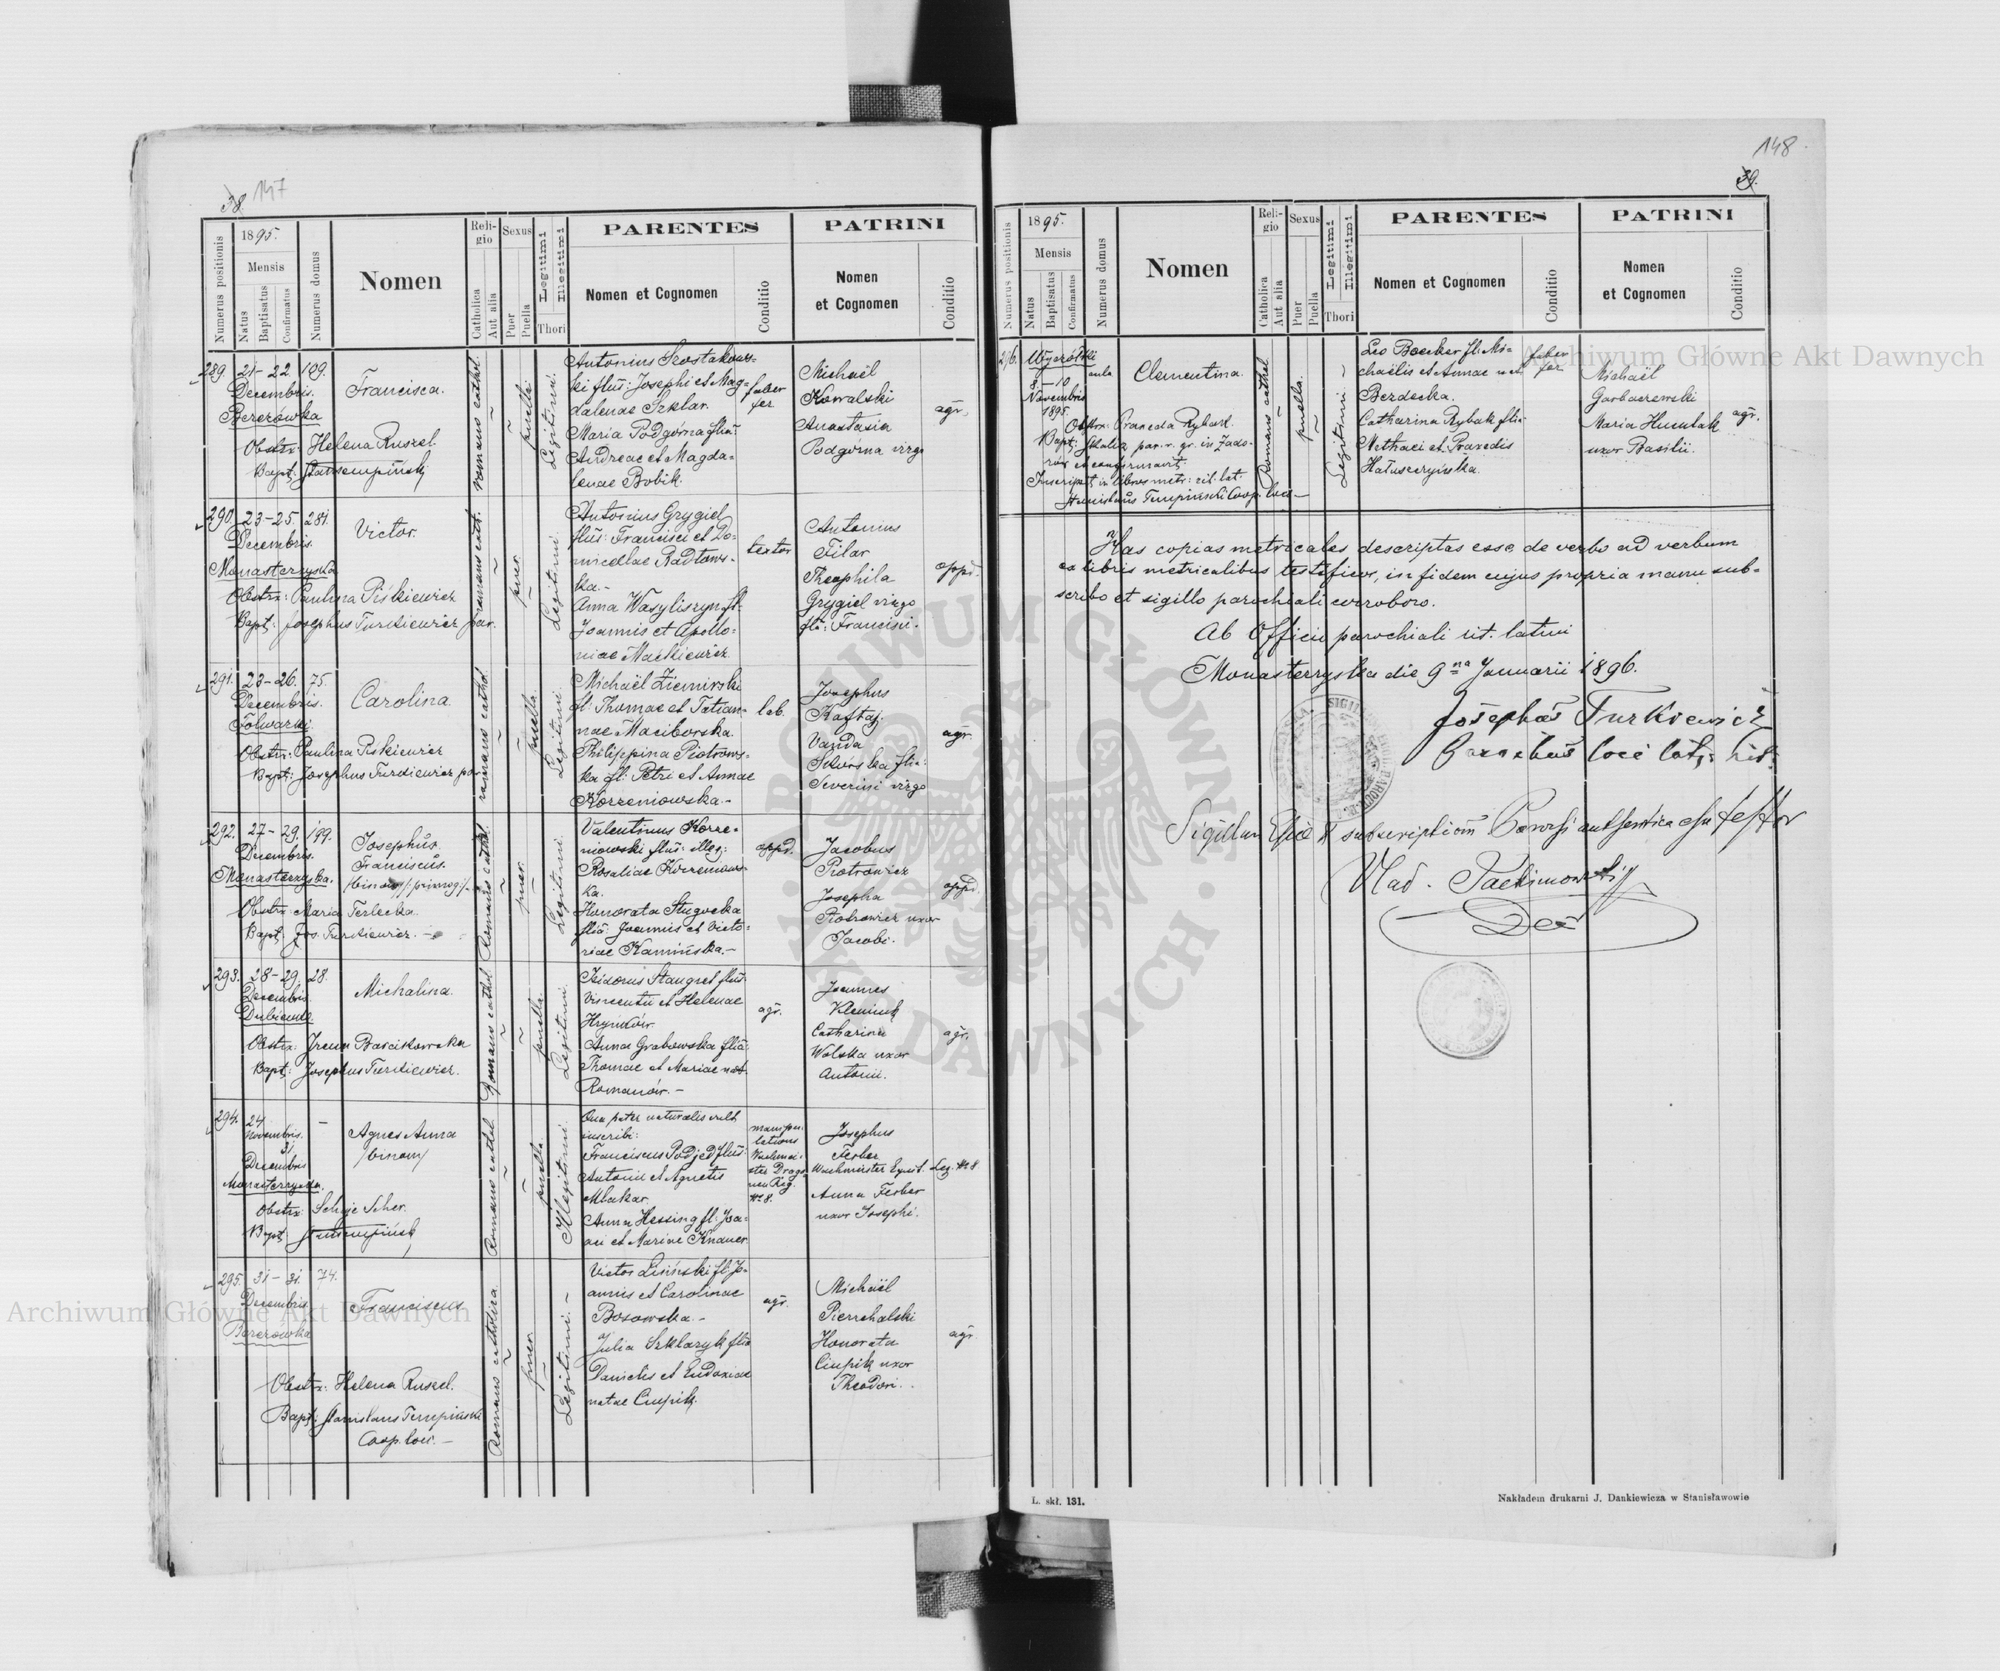 147
38.
Numerus positionis
1895.
Mensis
Natus
Baptisatus
Confirmatus
Numerus domus
Nomen
Religio
Catholica
Aut alia
Sexus
Puer
Puella
Legitimi
Illegitimi
Thori
PARENTES
Nomen et Cognomen
Conditio
PATRINI
Nomen
et Cognomen
Conditio
289 21-22. 109.
Decembris.
Berezówka
Francisca.
Obstr: Helena Ruszel.
romano cathol.
puella
Legitimi.
Antonius Szostakows-
ki flius: Josephi et Mag-
dalenae Szklar.
Maria Podgórna flia:
Andreae et Magda-
lenae Bobik.
faber
fer
Michaël
Kowalski
Anastasia
Podgórna virgo
agr.
290 23-25. 281.
Decembris.
Monasterzyska
Victor.
Obstr: Paulina Piśkiewicz
Bapt: Josephus Turkiewicz par.
puer.
Legitimi.
Antonius Grygiel
flius: Francisci et Do-
micellae Radłows-
ka.-
Anna Wasyliszyn fl:
Joannis et Apollo-
niae Maćkiewicz.
textor
Antonius
Filar
Theophila
Grygiel virgo
flia: Francisci.
oppd.
291. 23-26. 75.
Decembris.
Folwarki
Carolina.
Obstr: Paulina Piskiewicz
Bapt: Josephus Turkiewicz par.
romano cathol.
puella.
Legitimi.
Michaël Ziemirski
fl: Thomae et Tatian-
nae Maciborska.
Philippina Piotrows-
ka fl: Petri et Annae
Korzeniowska.-
lab.
Josephus
Kaftaj.
Vanda
Sikorska flia:
Severini virgo
agr.
292. 27-29. 199.
Decembris.
Monasterzyska.
Josephus.
Franciscus.
Obstr: Maria Terlecka.
Bapt: Jos. Turkiewicz.
Romano cathol.
puer.
Legitimi.
Valentinus Korze-
niowski flius: illeg:
Rosaliae Korzeniows-
ka.
Honorata Sługocka
flia: Joannis et Victo-
riae Kamińska.-
oppd.
Jacobus
Piotrowicz
Josepha
Piotrowicz uxor
Jacobi.
oppd.
293. 28-29. 28.
Decembris
Dubienko.
Michalina.
Obstr: Bascikowska
Bapt: Josephus Turkiewicz.
Romano cathol.
puella.
Legitimi.
Isidorus Staugret flius:
Vincentii et Helenae
Hryńków.
Anna Grabowska flia:
Thomae et Mariae nat.
Romanów.-
agr.
Joannes
Catharina
Wolska uxor
Antonii.
agr.
294. 24
Novembris.
31
Decembris
Monasterzyska.
-
Agnes Anna
/binom/
Obstr: Scher.
Romano cathol.
puella.
Illegitimi.
Qua pater naturalis vult
inscribi:
Franciscus Podjed flius:
Antonii et Agnetis
Mlakar.
Anna Hessing fl:
et Mariae Knauer.
Josephus
Ferber
Wachmeister
Anna Ferber
uxor Josephi.
295. 31-31. 74.
Decembris.
Berezówka
Franciscus
Obstr: Helena Ruszel.
Bapt: Stanislaus Tempiński
Coop. loci.-
Romano catholica
puer.
Legitimi.-
Victor Lisiński fl: Jo-
annis et Carolinae
Bosowska.-
Julia Szklaryk flia
Danielis et Eudoxiae
natae Ciupik.
agr.
Michaël
Pierzchalski
Honorata
Ciupik uxor
Theodori.
agr.
148.
39.
Numerus positionis
1895.
Mensis
Natus
Baptisatus
Confirmatus
Numerus domus
Nomen
Religio
Catholica
Aut alia
Sexus
Puer
Puella
Legitimi
Illegitimi
Thori
PARENTES
Nomen et Cognomen
Conditio
PATRINI
Nomen
et Cognomen
Conditio
296.
-10
Novembris
1895.
Clementina.
Obstr: Praxeda Rybak.
et confirmavit.
Inscript. in libros metr: rit. lat.
Stanislaus Tempiński Coop. loci-
Romano cathol
puella.
Legitimi-
Leo Boecker fl: Mi-
chaëlis et Annae nat.
Berdecka.
Catharina Rybak flia
Mathaei et Praxedis
Hałuszczyńska.
faber
fer
Michaël
Garbaczewski
Maria Humlak
uxor Basilii.
agr.
Has copias metricales descriptas esse de verbo ad verbum
ex libris metricalibus testificor, in fidem cujus propria manu sub-
scribo et sigillo parochiali corroboro.
Ab Officio parochiali rit. latini
Monasterzyska die 9na Januarii 1896.
Josephus Turkiewicz
Parochus loci lat: rit.
Vlad.
Dec
L. skł. 131.
Nakładem drukarni J. Dankiewicza w Stanisławowie
Archiwum Główne Akt Dawnych
Archiwum Główne Akt Dawnych
ARCHIWUM GŁÓWNE AKT DAWNYCH